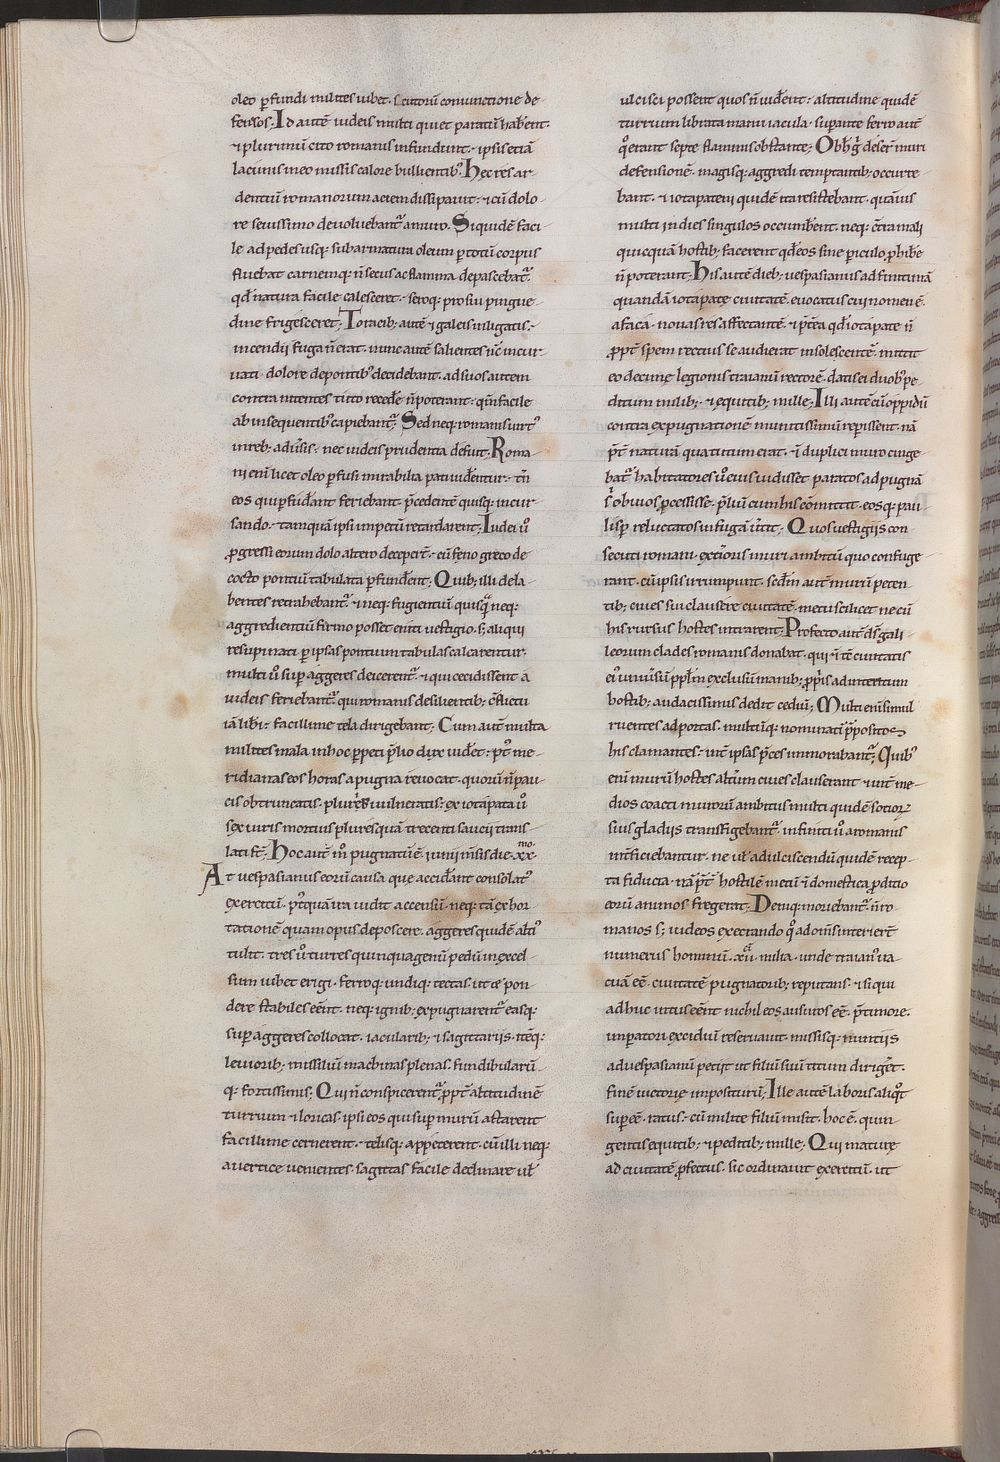 oleo ꝑfundi milites iubet. scutorũ coniunctione de
fensos. Id autẽ iudeis multi quiet paratũ hab̃ent.
⁊ plurimũ cito romanis infundunt. ipsis etiã
lacunis in eo missis calore bullientibꝰ. Hec res ar
dentiũ romanorum aciem dissipauit. ⁊ cũ dolo
re seuissimo deuoluebant᷑ a muro. Siquidẽ faci
le ad pedes usq; sub armatura oleum ꝑ totũ corpus
fluebat carnemq; ñ secus ac flamma depascebat᷑.
qđ natura facile calesceret. seroq; pro sui pingue
dine frigesceret; Toracib; autẽ ⁊ galeis inligatis.
incendii fuga ñ erat. nunc autẽ salientes nc̃ incur
uati dolore de pontibꝰ decidebant. ad suos autem
contra nitentes tuto recede᷑ ñ poterant. qm̃ facile
ab insequentibꝰ capiebant᷑; Sed neq; romanis uirtꝰ
in reb; adũsis. nec iudeis prudentia defuit. Roma
ni eni᷑ licet oleo ꝑfusi mirabilia pati uidẽntur. tñ
eos qui ꝑfuđant feriebant. p̃cedentẽ quisq; incur
sando. tamquã ipsi impetũ retardarent; Iudei ũ
ꝓgressi eorum dolo altero deceper̃t. cũ feno greco de
cocto pontiũ tabulata ꝑfunđent; Quib; illi dela
bentes retrahebant᷑. ⁊ neq; fugientiũ quisq̃ neq;
aggredientiũ firmo posset eniti uestigio. s; aliqui
resupinati ꝑ ipsas pontium tabulas calcarentur.
multi ũ suꝑ aggeres deicerent᷑. ⁊ qui cecidissent a
iudeis feriebant᷑. qui romanis desilientib; c̃flictu
iã lib̃i. facillime tela dirigebant; Cum aut̃ multa
milites mala in hoc ꝑpeti p̃lio dux uiđet. pt̃ me
ridianas eos horas a pugna reuocat. quorũ ñ pau
cis obtruncatis. plurib; uulneratis. ex iotapata ũ
sex uiris mortuis plures quã trecenti saucii trans
lati st̃; Hoc aut̃ m̊ pugnatũ ẽ. iunii m̃sis die .xx.mo
At uespasianus eorũ causa que acciđant consolatꝰ
exercitũ. pt̃quã ira uidit accensũ. neq; tã exhor
tationẽ quam opus deposcere. aggeres quidẽ altiꝰ
tulit. tres ũ turres quinquagenũ pedũ in excel
sum iubet erigi. ferroq; undiq; tectas. ut ⁊ pon
dere stabiles eẽnt. neq; ignib; expugnarent᷑ easq;
suꝑ aggeres collocat. iacularib; ⁊ sagittariis. itẽq;
leuiorib; missiliũ machinas plenas. fundibularũ
q; fortissimis; Qui ñ conspicerent᷑ ꝓpt̃ altitudinẽ
turrium ⁊ loricas. ipsi eos qui suꝑ murũ astarent
facillime cernerent. telisq; appeterent. cũ illi neq;
a uertice uenientes. sagittas facile declinare ut̃
ulcisci possent quos ñ uiđent. altitudine quidẽ
turrium librata manu iacula suꝑante ferro aut̃
q̊ erant septe flammis obstante; Ob hoc̃ deser̃ muri
defensionẽ. magisq; aggredi temptantib; occurre
bant. ⁊ iotapateni quidẽ ita resistebant. quãuis
multi in dies singulos occumb̃ent. neq; c̃tra mali
quicquã hostib; facerent qđ eos sine ꝑiculo ꝓhib̃e
ñ poterant; His autẽ dieb; uespasianus ad finitimã
quandã iotapatę ciuitatẽ. euocatus cui nomen ẽ.
a faca. nouas res affectantẽ. ⁊ p̃t̃ea qđ iotapate ñ
ꝓpt̃ spem rectius se audierat insolescentẽ. mittit
eo decimę legionis traianũ rectorẽ. datis ei duobꝰ pe
ditum milib;. ⁊ equitib; mille; Illi autẽ cũ oppidũ
contra expugnationẽ munitissimũ reperissent. nã
p̃t̃ naturã qua tutum erat. ⁊ duplici muro cinge
bat᷑ habitatores ũ eius uidisset paratos ad pugnã
s obuios ꝓcessisse. p̃liũ cum his cõmittit. eosq; pau
lisꝑ reluctatos in fugã ũtit; Quos uestigiis con
secuti romani. ext̃ioris muri ambitũ quo confuge
rant. cũ ipsis irrumpunt. secđm aut̃ murũ peten
tib; ciues sui clausere ciuitatẽ. metu scilicet ne cũ
his rursus hostes intrarent; Profecto aut̃ dš gali
leorum clades romanis donabat. qui ⁊ tc̃ ciuitatis
eiꝰ uniũsũ pp̃lm̃ exclusũ manib; ꝓpriis ad interitum
hostib; audacissimis dedit cedũi; Multi eni᷑ simul
ruentes ad portas. multiũq; nominati᷑ p̃positos
his clamantes. int̃ ipsas p̃ces inmorabant᷑; Quibꝰ
eni᷑ murũ hostes alt̃um ciues clauserant ⁊ int̃ me
dios coacti murorũ ambitus multi quidẽ socior
suis gladiis transfigebant᷑. infiniti ũ a romanis
int̃ficiebantur. ne ut̃ ad ulciscendũ quidẽ recep
ta fiducia. nã p̃t̃ hostilẽ metũ ⁊ domestica ꝓditio
eorũ animos fregerat; Deniq; moriebant᷑ ñ ro
manos s; iudeos execrando q̊ad om̃s interier̃t
numerus hominũ .xii. milia. unde traianꝰ ua
cuã eẽ ciuitatẽ pugnatorib; reputans. ⁊ si qui
adhuc intus eẽnt nichil eos ausuros eẽ p̃ timore.
imperatori excidiũ reseruauit. missisq; nuntiis
ad uespasianũ petiit ut filiũ sui titum dirigẽt.
finẽ uictorię impositurũ; Ille autẽ laboris aliqđ
supeẽ. ratus. cũ milite filiũ misit. hoc ẽ. quin
gentis equitib;. ⁊ peditib; mille; Qui mature
ad ciuitatẽ ꝓfectus. sic ordinauit exercitũ. ut